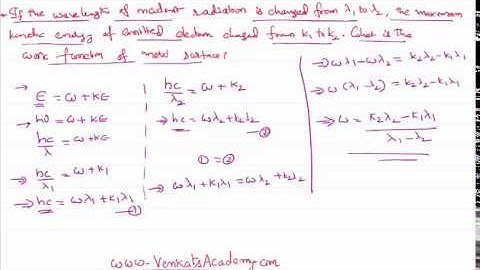 If the wavelength of incident radiation is changed from λ₁ to λ₂, the maximum
kinetic energy of emitted electron changed from K₁ to K₂. What is the
work function of metal surface?
→ E = ω + KE
→ hν = ω + KE
hc/λ = ω + KE
→ hc/λ₁ = ω + K₁
→ hc = ωλ₁ + K₁λ₁ ①
hc/λ₂ = ω + K₂
→ hc = ωλ₂ + K₂λ₂ ②
① = ②
→ ωλ₁ + K₁λ₁ = ωλ₂ + K₂λ₂
→ ωλ₁ - ωλ₂ = K₂λ₂ - K₁λ₁
→ ω(λ₁ - λ₂) = K₂λ₂ - K₁λ₁
→ ω = K₂λ₂ - K₁λ₁ / λ₁ - λ₂
www.VenkatsAcademy.com